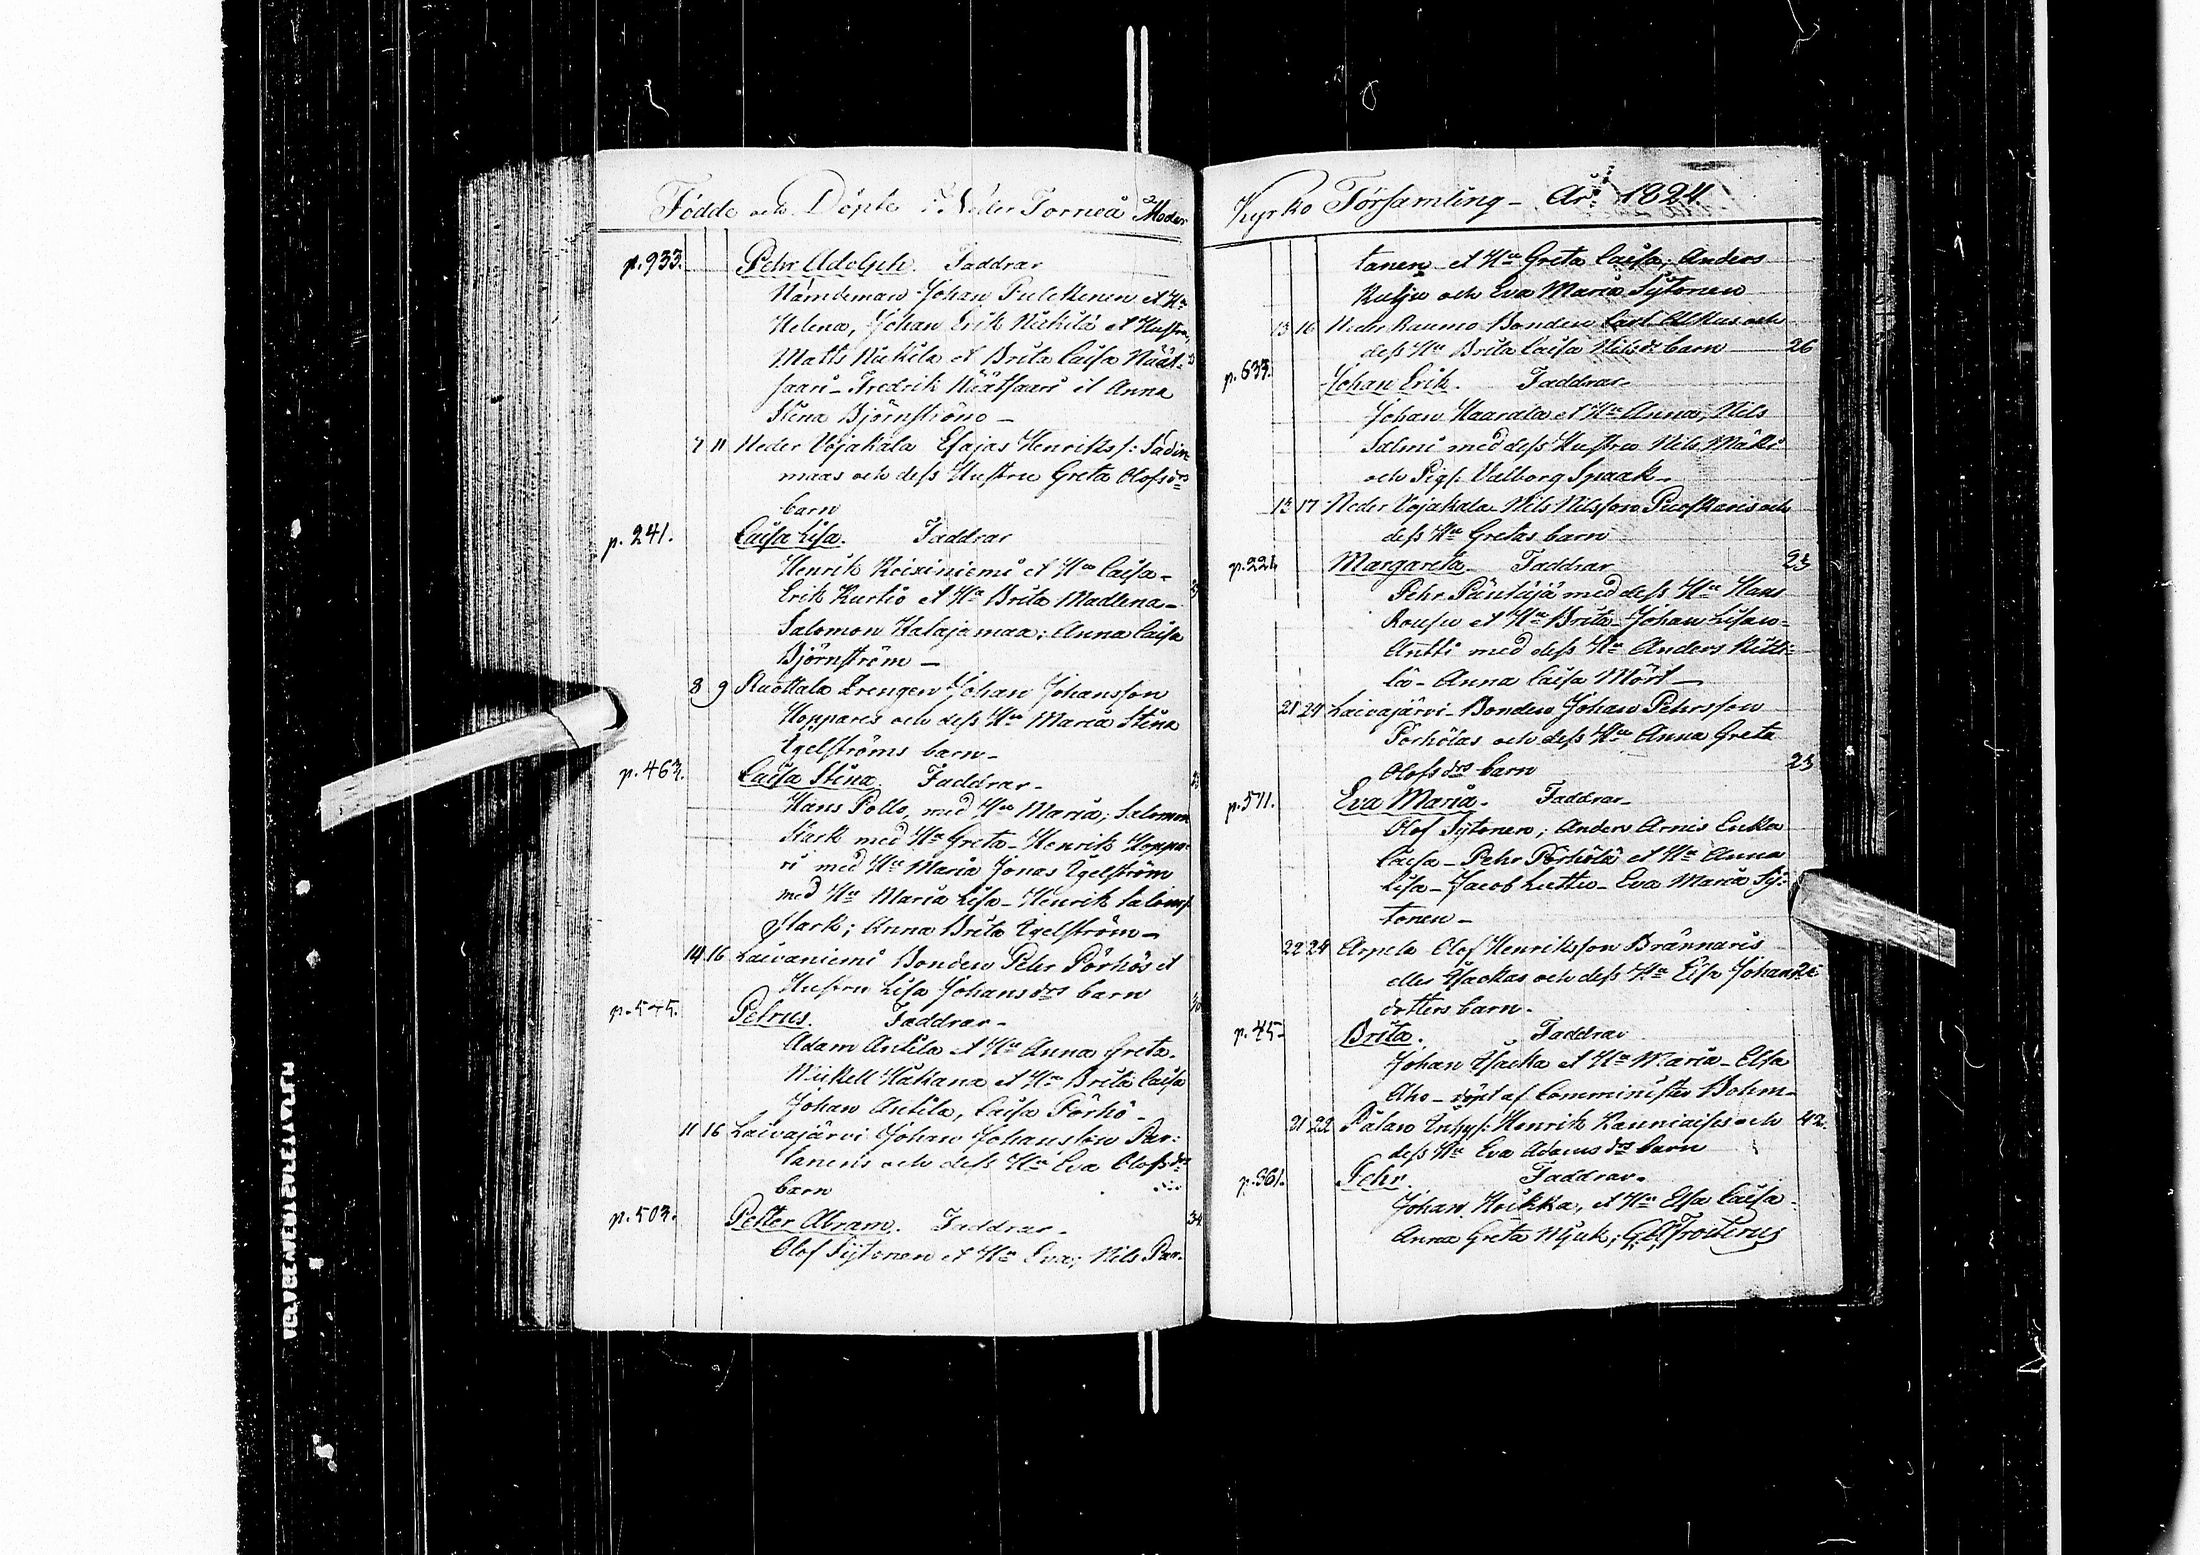 Födde och Döpte i Neder Torneå Moder
p. 933. Pehr Adolph. Faddrar
Nämdeman Johan Pulckenen et Hu
Helena, Johan Erik Niskila et Hustru,
Matts Niskila et Brita Caisa Näät-
saari - Fredrik Näätsaari et Anna
Stina Björnström -
7 11 Neder Vojakala Esajas Henriks s: Sadin
maas och dess Hustru Greta Olofsdrs
barn
p. 241. Caisa Lisa. Faddrar
Henrik Koixiniemi et Hu Caisa -
Erik Kurtio et Hu Brita Madlena -
Salomon Katajamaa; Anna Caisa
Björnström -
8 9 Ruottala Drengen Johan Johansson
Hoppares och dess Hu Maria Stina
Egelströms barn -
p. 463. Caisa Stina. Faddrar -
Hans Pello, med Hu Maria; Salomon
Stark med Hu Greta - Henrik Hoppa-
ri med Hu Maria Jonas Egelström
med Hu Maria Lisa - Henrik Saloms
Stark; Anna Brita Egelström -
14 16 Laivaniemi Bonden Pehr Pörhös et
Hustru Lisa Johansdrs barn
p. 545. Petrus. Faddrar -
Adam Antila et Hu Anna Greta -
Mickell Hakana et Hu Brita Caisa
Johan Antila, Caisa Pörhö -
11 16 Laivajärvi Johan Johansson Par-
tanens och dess Hu Eva Olofsdrs
barn
p. 503. Petter Abram. Faddrar - 34
Olof Sytonen et Hu Eva; Nils Par-
Kyrko Församling - År 1824.
tanen et Hu Greta Caisa; Anders
Kulju och Eva Maria Sytonen
13 16 Neder Raumo Bonden Carl Alkus och
dess Hu Brita Caisa Nilsdrs barn 26
p. 633. Johan Erik. Faddrar -
Johan Haarala et Hu Anna, Nils
Salmi med dess Hustru Nils Mäki
och Pigs. Valborg Spaak -
13 17 Neder Vojakala Nils Nilsson Puoskaris och
dess Hu Gretas barn
p. 221. Margareta Faddrar 23
Pehr Päntäjä med dess Hu Hans
Rousu et Hu Brita - Johan Lisan-
Antti med dess Hu Anders Kitti-
lä - Anna Caisa Mört -
21 24 Laivajärvi - Bonden Johan Pehrsson
Pörhöläs och dess Hu Anna Greta
Olofsdrs barn 23
p. 511. Eva Maria. Faddrar -
Olof Sytonen; Anders Arnis Enka
Caisa - Pehr Pörhölä et Hu Anna
Lisa - Jacob Luttu - Eva Maria Sy-
tonen -
22 24 Arpela Olof Henriksson Brännaris
eller Ylackas och dess Hu Eisa Johans
dotters barn.
p. 45. Brita. Faddrar
Johan Ylacka et Hu Maria - Elsa
Aho - döpt af Comminister Bohm -
21 22 Kalan Inhys: Henrik Kauniaises och 42.
dess Hu Eva Adamsdrs barn
p. 561. Pehr. Faddrar -
Johan Hoikka, et Hu Elsa Caisa -
Anna Greta Mjuk; G A Frosterus